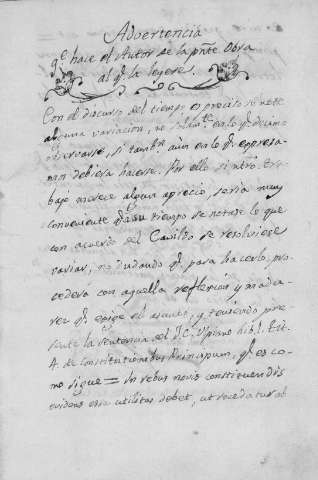 Advertencia
q.e hace el Autor de la pnte Obra
al q.e la leyere.
Con el discurso del tiempo es preciso se note
alguna variacion, no solam.te en lo q.e decimos
observarse, si tambn. aun en lo q.e expresa-
mos debiera hacerse. Por ello si ntro. tra-
bajo merece algun aprecio, seria muy
conveniente q.e a su tiempo se notase lo que
con acuerdo del Cavildo se resolviese
variar, no dudando q.e para hacerlo, pro-
cedera con aquella reflexion y madu-
rez q.e exige el asunto, y teniendo pre-
sente la sentencia del J.C. Ulpiano lib. 1. tit.
4. de Constitutionibus Principum, q.e es co-
mo sigue = In rebus novis constituendis
evidens esse utilitas debet, ut recedatur ab